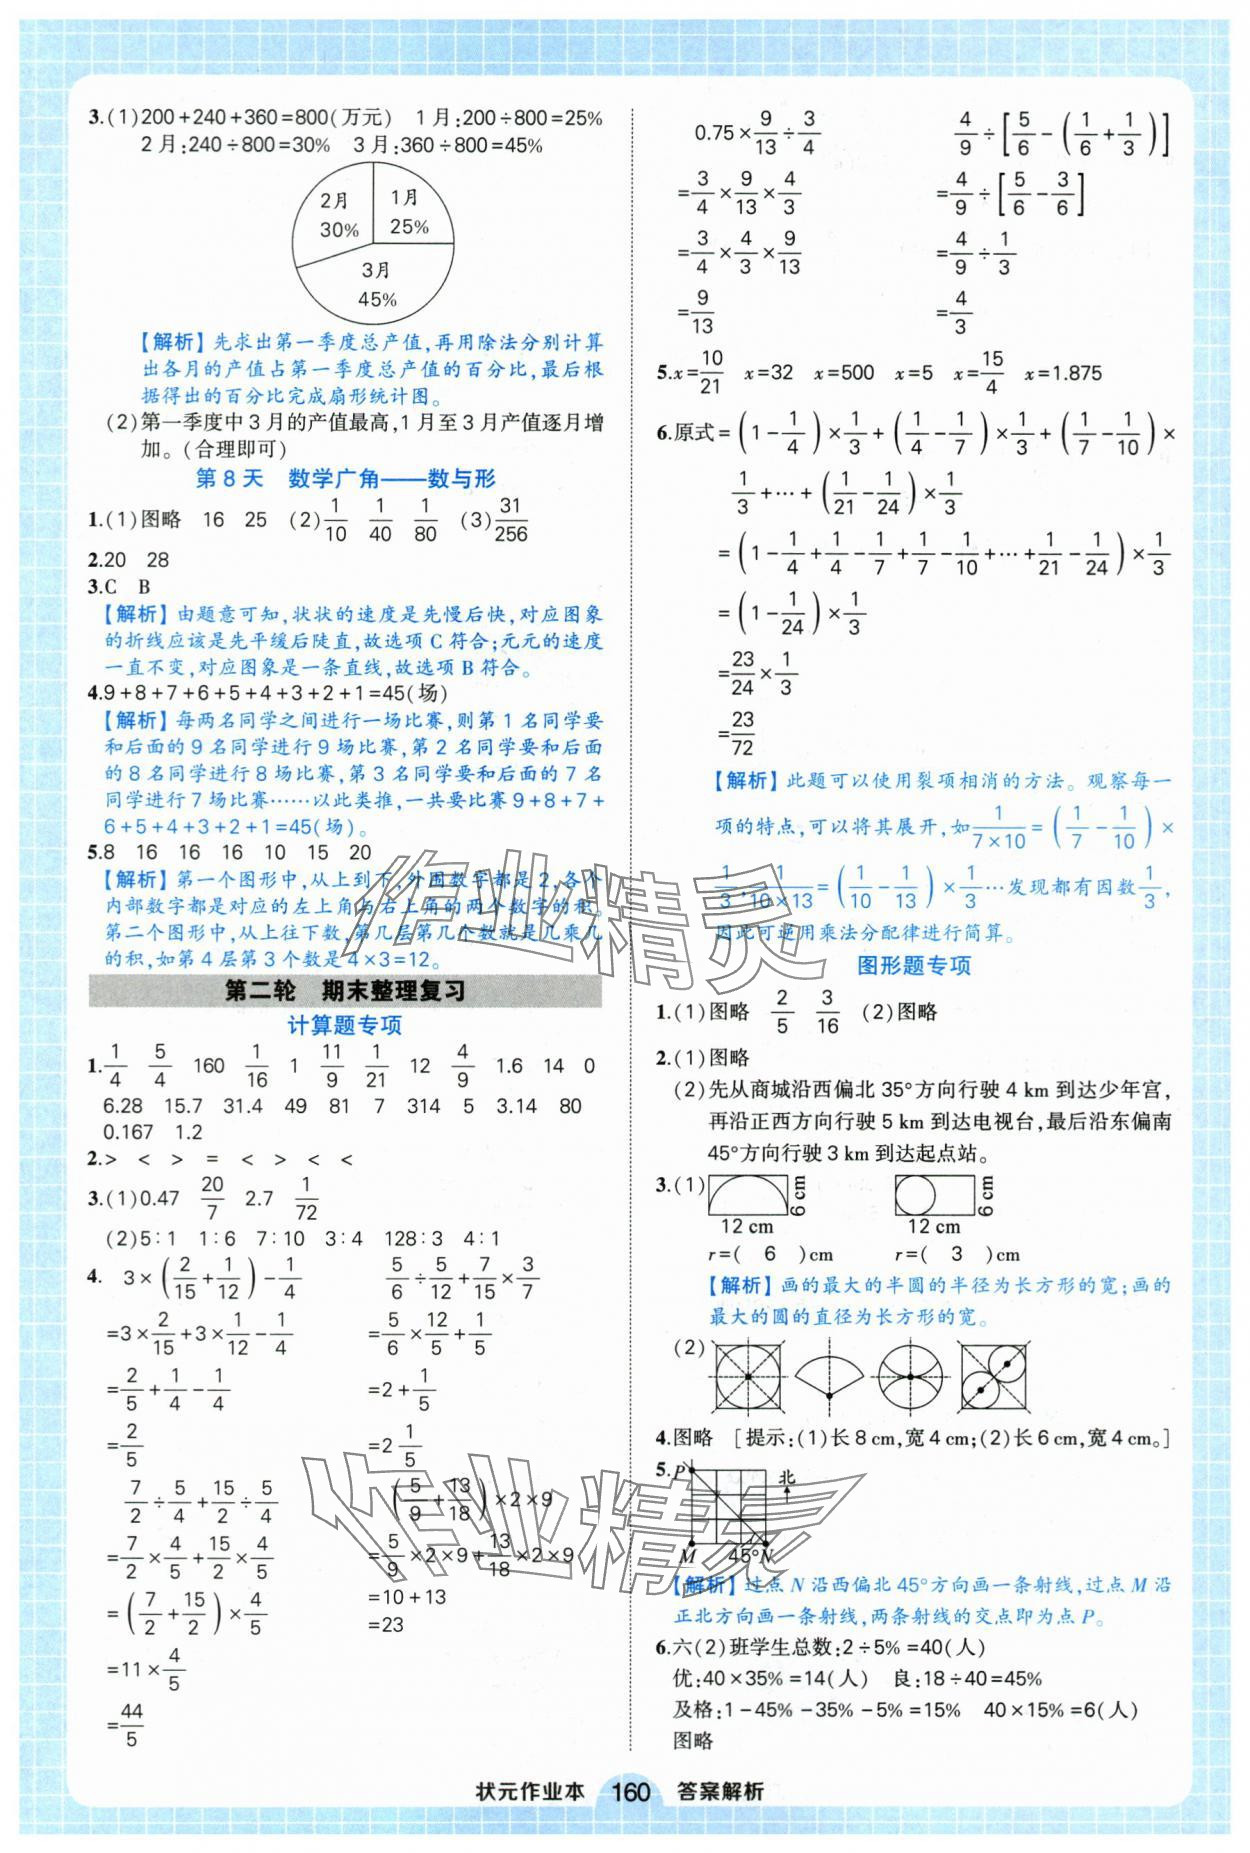 3.(1)200+240+360=800(万元) 1月:200÷800=25%
2月:240÷800=30% 3月:360÷800=45%
2月 30%
1月 25%
3月 45%
【解析】先求出第一季度总产值,再用除法分别计算
出各月的产值占第一季度总产值的百分比,最后根
据得出的百分比完成扇形统计图。
(2)第一季度中3月的产值最高,1月至3月产值逐月增
加。(合理即可)
第8天 数学广角——数与形
1.(1)图略 16 25 (2)1/10 1/40 1/80 (3)31/256
2.20 28
3.C B
【解析】由题意可知,状状的速度是先慢后快,对应图象
的折线应该是先平缓后陡直,故选项C符合;元元的速度
一直不变,对应图象是一条直线,故选项B符合。
4.9+8+7+6+5+4+3+2+1=45(场)
【解析】每两名同学之间进行一场比赛,则第1名同学要
和后面的9名同学进行9场比赛,第2名同学要和后面
的8名同学进行8场比赛,第3名同学要和后面的7名
同学进行7场比赛……以此类推,一共要比赛9+8+7+
6+5+4+3+2+1=45(场)。
5.8 16 16 16 10 15 20
【解析】第一个图形中,从上到下,外围数字都是2,各个
内部数字都是对应的左上角与右上角的两个数字的积。
第二个图形中,从上往下数,第几层第几个数就是几乘几
的积,如第4层第3个数是4×3=12。
第二轮 期末整理复习
计算题专项
1.1/4 5/4 160 1/16 1 11/9 1/21 12 4/9 1.6 14 0
6.28 15.7 31.4 49 81 7 314 5 3.14 80
0.167 1.2
2.> < > = < > < <
3.(1)0.47 20/7 2.7 1/72
(2)5:1 1:6 7:10 3:4 128:3 4:1
4. 3×(2/15+1/12)-1/4
=3×2/15+3×1/12-1/4
=2/5+1/4-1/4
=2/5
5/6÷5/12+7/15×3/7
=5/6×12/5+1/5
=2+1/5
=2 1/5
7/2÷5/4+15/2÷5/4
=7/2×4/5+15/2×4/5
=(7/2+15/2)×4/5
=11×4/5
=44/5
(5/9+13/18)×2×9
=5/9×2×9+13/18×2×9
=10+13
=23
0.75×9/13÷3/4
=3/4×9/13×4/3
=3/4×4/3×9/13
=9/13
4/9÷[5/6-(1/6+1/3)]
=4/9÷[5/6-3/6]
=4/9÷1/3
=4/3
5.x=10/21 x=32 x=500 x=5 x=15/4 x=1.875
6.原式=(1-1/4)×1/3+(1/4-1/7)×1/3+(1/7-1/10)×
1/3+…+(1/21-1/24)×1/3
=(1-1/4+1/4-1/7+1/7-1/10+…+1/21-1/24)×1/3
=(1-1/24)×1/3
=23/24×1/3
=23/72
【解析】此题可以使用裂项相消的方法。观察每一
项的特点,可以将其展开,如1/(7×10)=(1/7-1/10)×
1/3,1/(10×13)=(1/10-1/13)×1/3…发现都有因数1/3,
因此可逆用乘法分配律进行简算。
图形题专项
1.(1)图略 2/5 3/16 (2)图略
2.(1)图略
(2)先从商城沿西偏北35°方向行驶4 km到达少年宫,
再沿正西方向行驶5 km到达电视台,最后沿东偏南
45°方向行驶3 km到达起点站。
3.(1) 6 cm 6 cm
12 cm 12 cm
r=( 6 )cm r=( 3 )cm
【解析】画的最大的半圆的半径为长方形的宽;画的
最大的圆的直径为长方形的宽。
(2)
4.图略 [提示:(1)长8 cm,宽4 cm;(2)长6 cm,宽4 cm。]
5. P 北
M 45° N
【解析】过点N沿西偏北45°方向画一条射线,过点M沿
正北方向画一条射线,两条射线的交点即为点P。
6.六(2)班学生总数:2÷5%=40(人)
优:40×35%=14(人) 良:18÷40=45%
及格:1-45%-35%-5%=15% 40×15%=6(人)
图略
作业精灵
作业精灵
状元作业本 160 答案解析